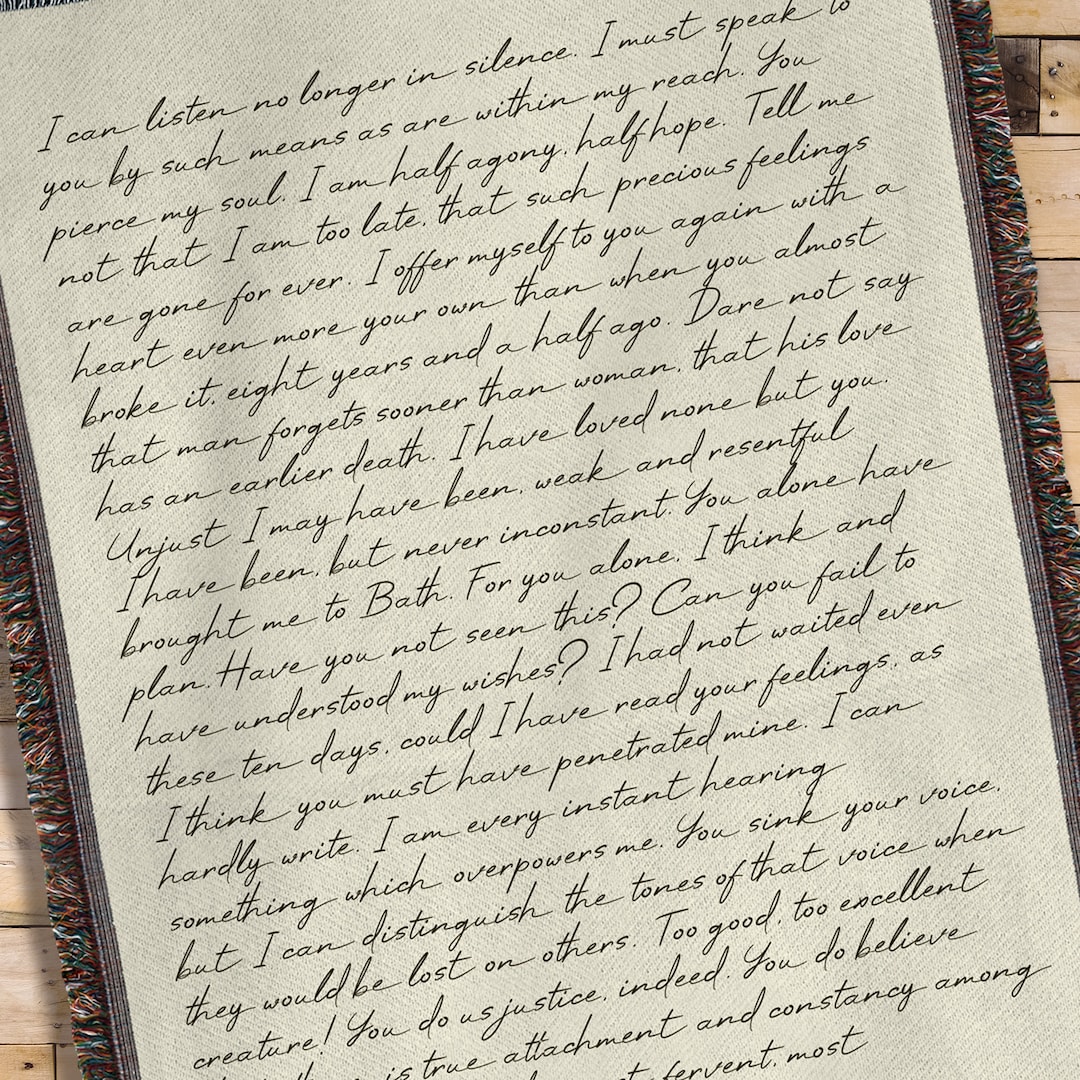 I can listen no longer in silence. I must speak to
you by such means as are within my reach. You
pierce my soul. I am half agony, half hope. Tell me
not that I am too late, that such precious feelings
are gone for ever. I offer myself to you again with a
heart even more your own than when you almost
broke it, eight years and a half ago. Dare not say
that man forgets sooner than woman, that his love
has an earlier death. I have loved none but you.
Unjust I may have been, weak and resentful
I have been, but never inconstant. You alone have
brought me to Bath. For you alone, I think and
plan. Have you not seen this? Can you fail to
have understood my wishes? I had not waited even
these ten days, could I have read your feelings, as
I think you must have penetrated mine. I can
hardly write. I am every instant hearing
something which overpowers me. You sink your voice,
but I can distinguish the tones of that voice when
they would be lost on others. Too good, too excellent
creature! You do us justice, indeed. You do believe
is true attachment and constancy among
fervent, most